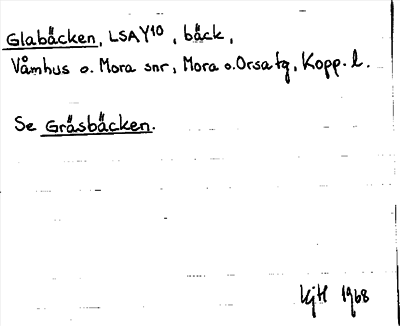 Glabäcken, LSA Y10, bäck,
Våmhus o. Mora snr, Mora o. Orsa tg, Kopp. l.
Se Gräsbäcken.
KjH 1968